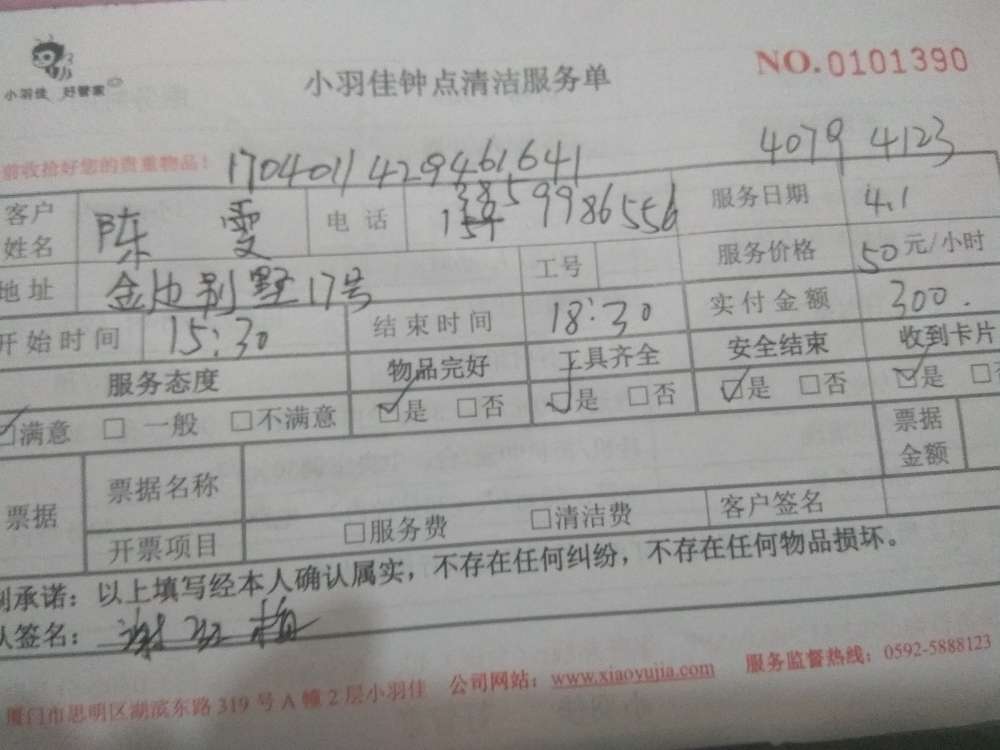 小羽佳 好管家
小羽佳钟点清洁服务单
NO.0101390
前收拾好您的贵重物品!
1704011429461641
4079 4123
客户姓名 陈雯 电话 9986556 服务日期 4.1
地址 别墅17号 工号 服务价格 50元/小时
开始时间 15:30 结束时间 18:30 实付金额 300.
服务态度 物品完好 工具齐全 安全结束 收到卡片
☑满意 □一般 □不满意 ☑是 □否 ☑是 □否 ☑是 □否 ☑是 □否
票据 票据名称 票据金额
开票项目 □服务费 □清洁费 客户签名
承诺:以上填写经本人确认属实,不存在任何纠纷,不存在任何物品损坏。
签名:
厦门市思明区湖滨东路319号A幢2层小羽佳 公司网站:www.xiaoyujia.com 服务监督热线:0592-5888123